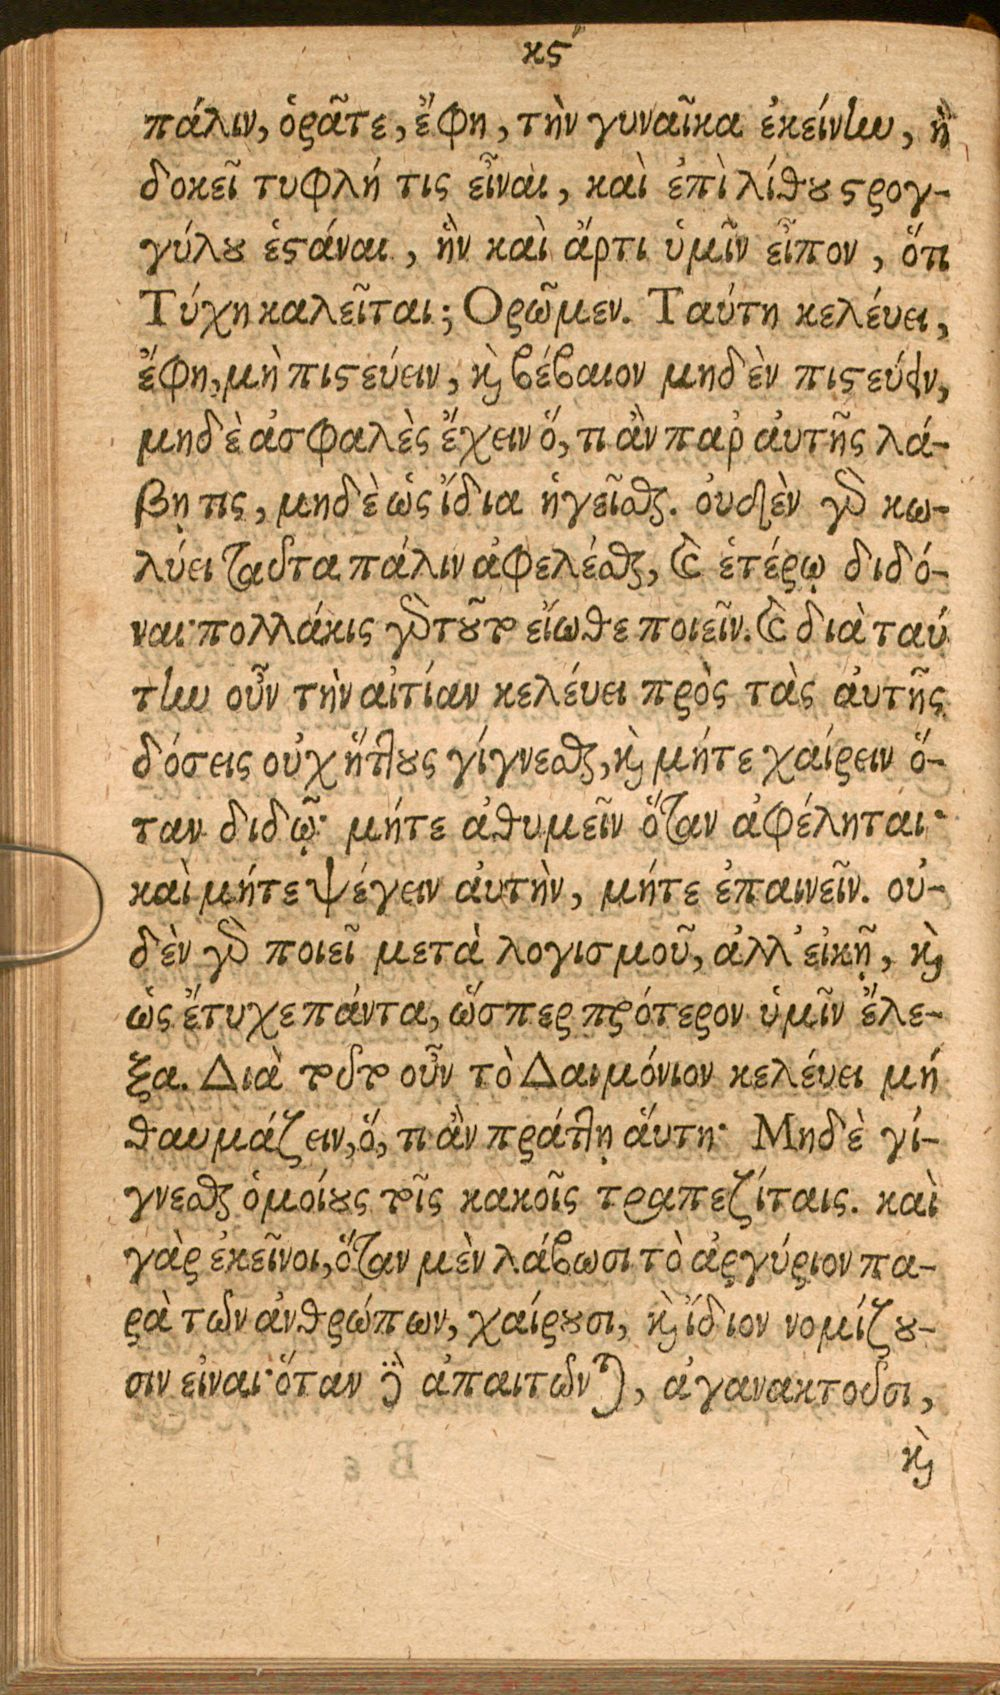 κϛʹ
πάλιν, ὁρᾶτε, ἔφη, τὴν γυναῖκα ἐκείνην, ἣ
δοκεῖ τυφλή τις εἶναι, καὶ ἐπὶ λίθου στρογ-
γύλου ἑστάναι, ἣν καὶ ἄρτι ὑμῖν εἶπον, ὅτι
Τύχη καλεῖται; Ορῶμεν. Ταύτη κελεύει,
ἔφη, μὴ πιστεύειν, καὶ βέβαιον μηδὲν πιστεύειν,
μηδὲ ἀσφαλὲς ἔχειν ὅ, τι ἂν παρ' ἀυτῆς λά-
βῃ τις, μηδὲ ὡς ἴδια ἡγεῖσθαι. ὀυδὲν γὰρ κω-
λύει ταῦτα πάλιν ἀφελέσθαι, καὶ ἑτέρῳ διδό-
ναι· πολλάκις γὰρ τοῦτο εἴωθε ποιεῖν. καὶ διὰ ταύ
την οὖν τὴν αἰτίαν κελέυει πρὸς τὰς ἀυτῆς
δόσεις οὐχ ἥττους γίγνεσθαι, καὶ μήτε χαίρειν ὅ-
ταν διδῷ· μήτε ἀθυμεῖν ὅταν ἀφέληται·
καὶ μήτε ψέγειν ἀυτὴν, μήτε ἐπαινεῖν. οὐ-
δὲν γὰρ ποιεῖ μετὰ λογισμοῦ, ἀλλ' εἰκῇ, καὶ
ὡς ἔτυχε πάντα, ὥσπερ πρότερον ὑμῖν ἔλε-
ξα. Διὰ τοῦτο οὖν τὸ Δαιμόνιον κελέυει μή
θαυμάζειν, ὅ, τι ἂν πράττῃ ἅυτη· Μηδὲ γί-
γνεσθαι ὁμοίους τοῖς κακοῖς τραπεζίταις. καὶ
γὰρ ἐκεῖνοι, ὅταν μὲν λάβωσι τὸ ἀργύριον πα-
ρὰ τῶν ἀνθρώπων, χαίρουσι, καὶ ἴδιον νομίζου-
σιν εἰναι· ὅταν δὲ ἀπαιτῶνται, ἀγανακτοῦσι,
καὶ